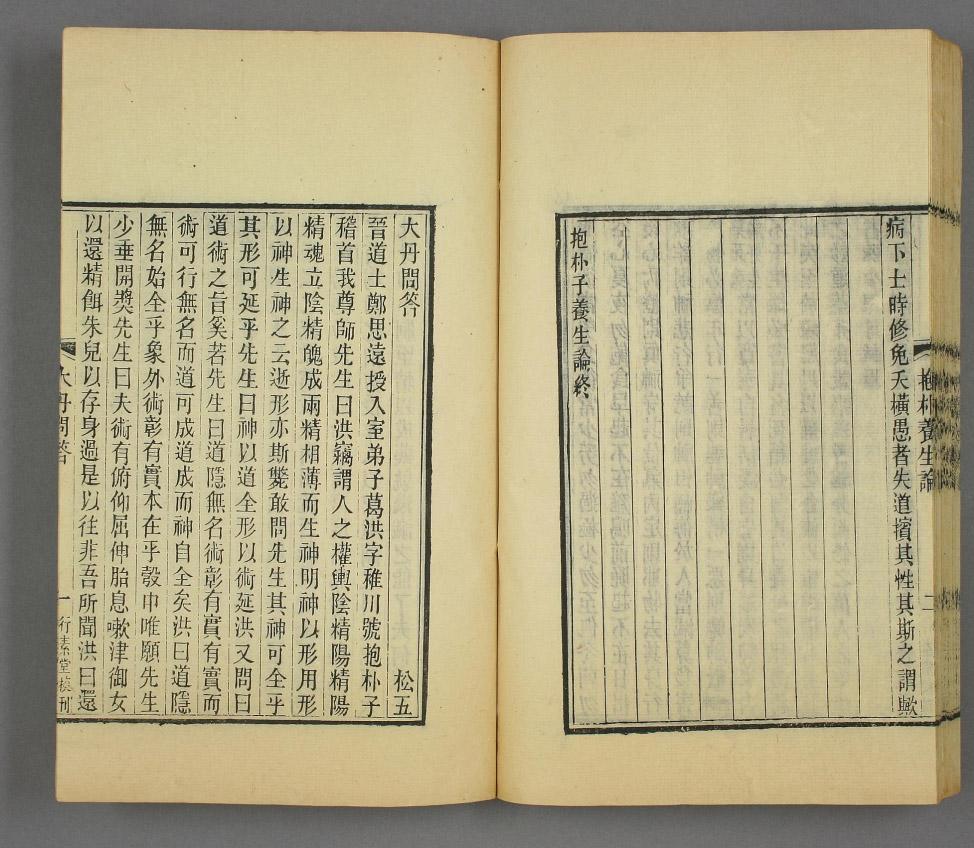 病下士時修免夭橫愚者失道擯其性其斯之謂歟
抱朴子養生論終
抱朴養生論
二
大丹問答
松五
晉道士鄭思遠授入室弟子葛洪字稚川號抱朴子
稽首我尊師先生曰洪竊謂人之權輿陰精陽精陽
精魂立陰精魄成兩精相薄而生神明神以形用形
以神生神之云逝形亦斯斃敢問先生其神可全乎
其形可延乎先生曰神以道全形以術延洪又問曰
道術之旨奚若先生曰道隱無名術彰有實有實而
術可行無名而道可成道成而神自全矣洪曰道隱
無名始全乎象外術彰有實本在乎彀中唯願先生
少垂開獎先生曰夫術有俯仰屈伸胎息嗽津御女
以還精餌朱兒以存身過是以往非吾所聞洪曰還
大丹問答
一
行素堂校刊